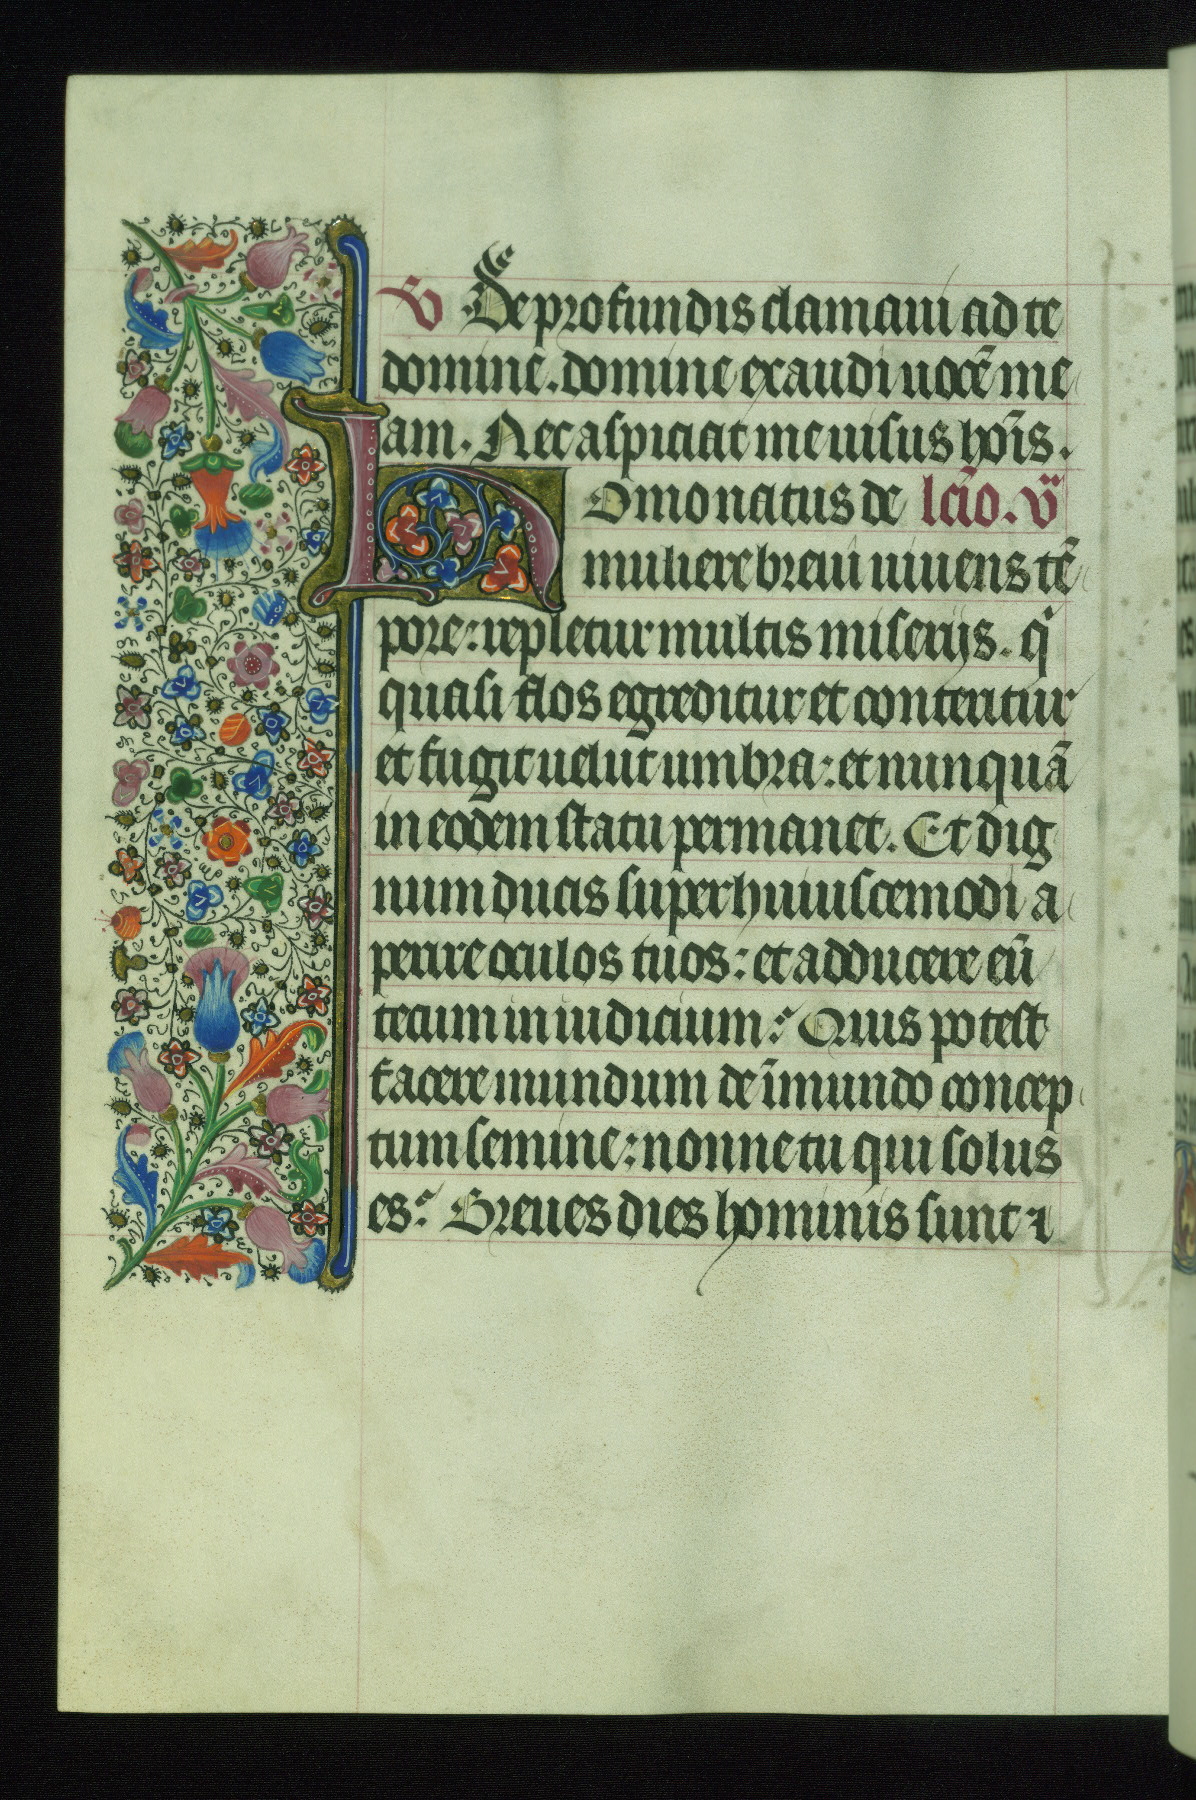 V De profundis clamaui ad te
domine. domine exaudi uocē me
am. Nec aspiciat me uisus hoīs.
HOmo natus de lcīo. v
muliere breui uiuens tē
pore: repletur multis miserijs. qͥ
quasi flos egreditur et conteritur
et fugit uelut umbra: et nunquā
in eodem statu permanet. Et dig
num ducis super huiuscemodi a
perire oculos tuos: et adducere eū
tecum in iudicium? Quis potest
facere mundum de īmundo concep
tum semine: nonne tu qui solus
es? Breues dies hominis sunt ⁊